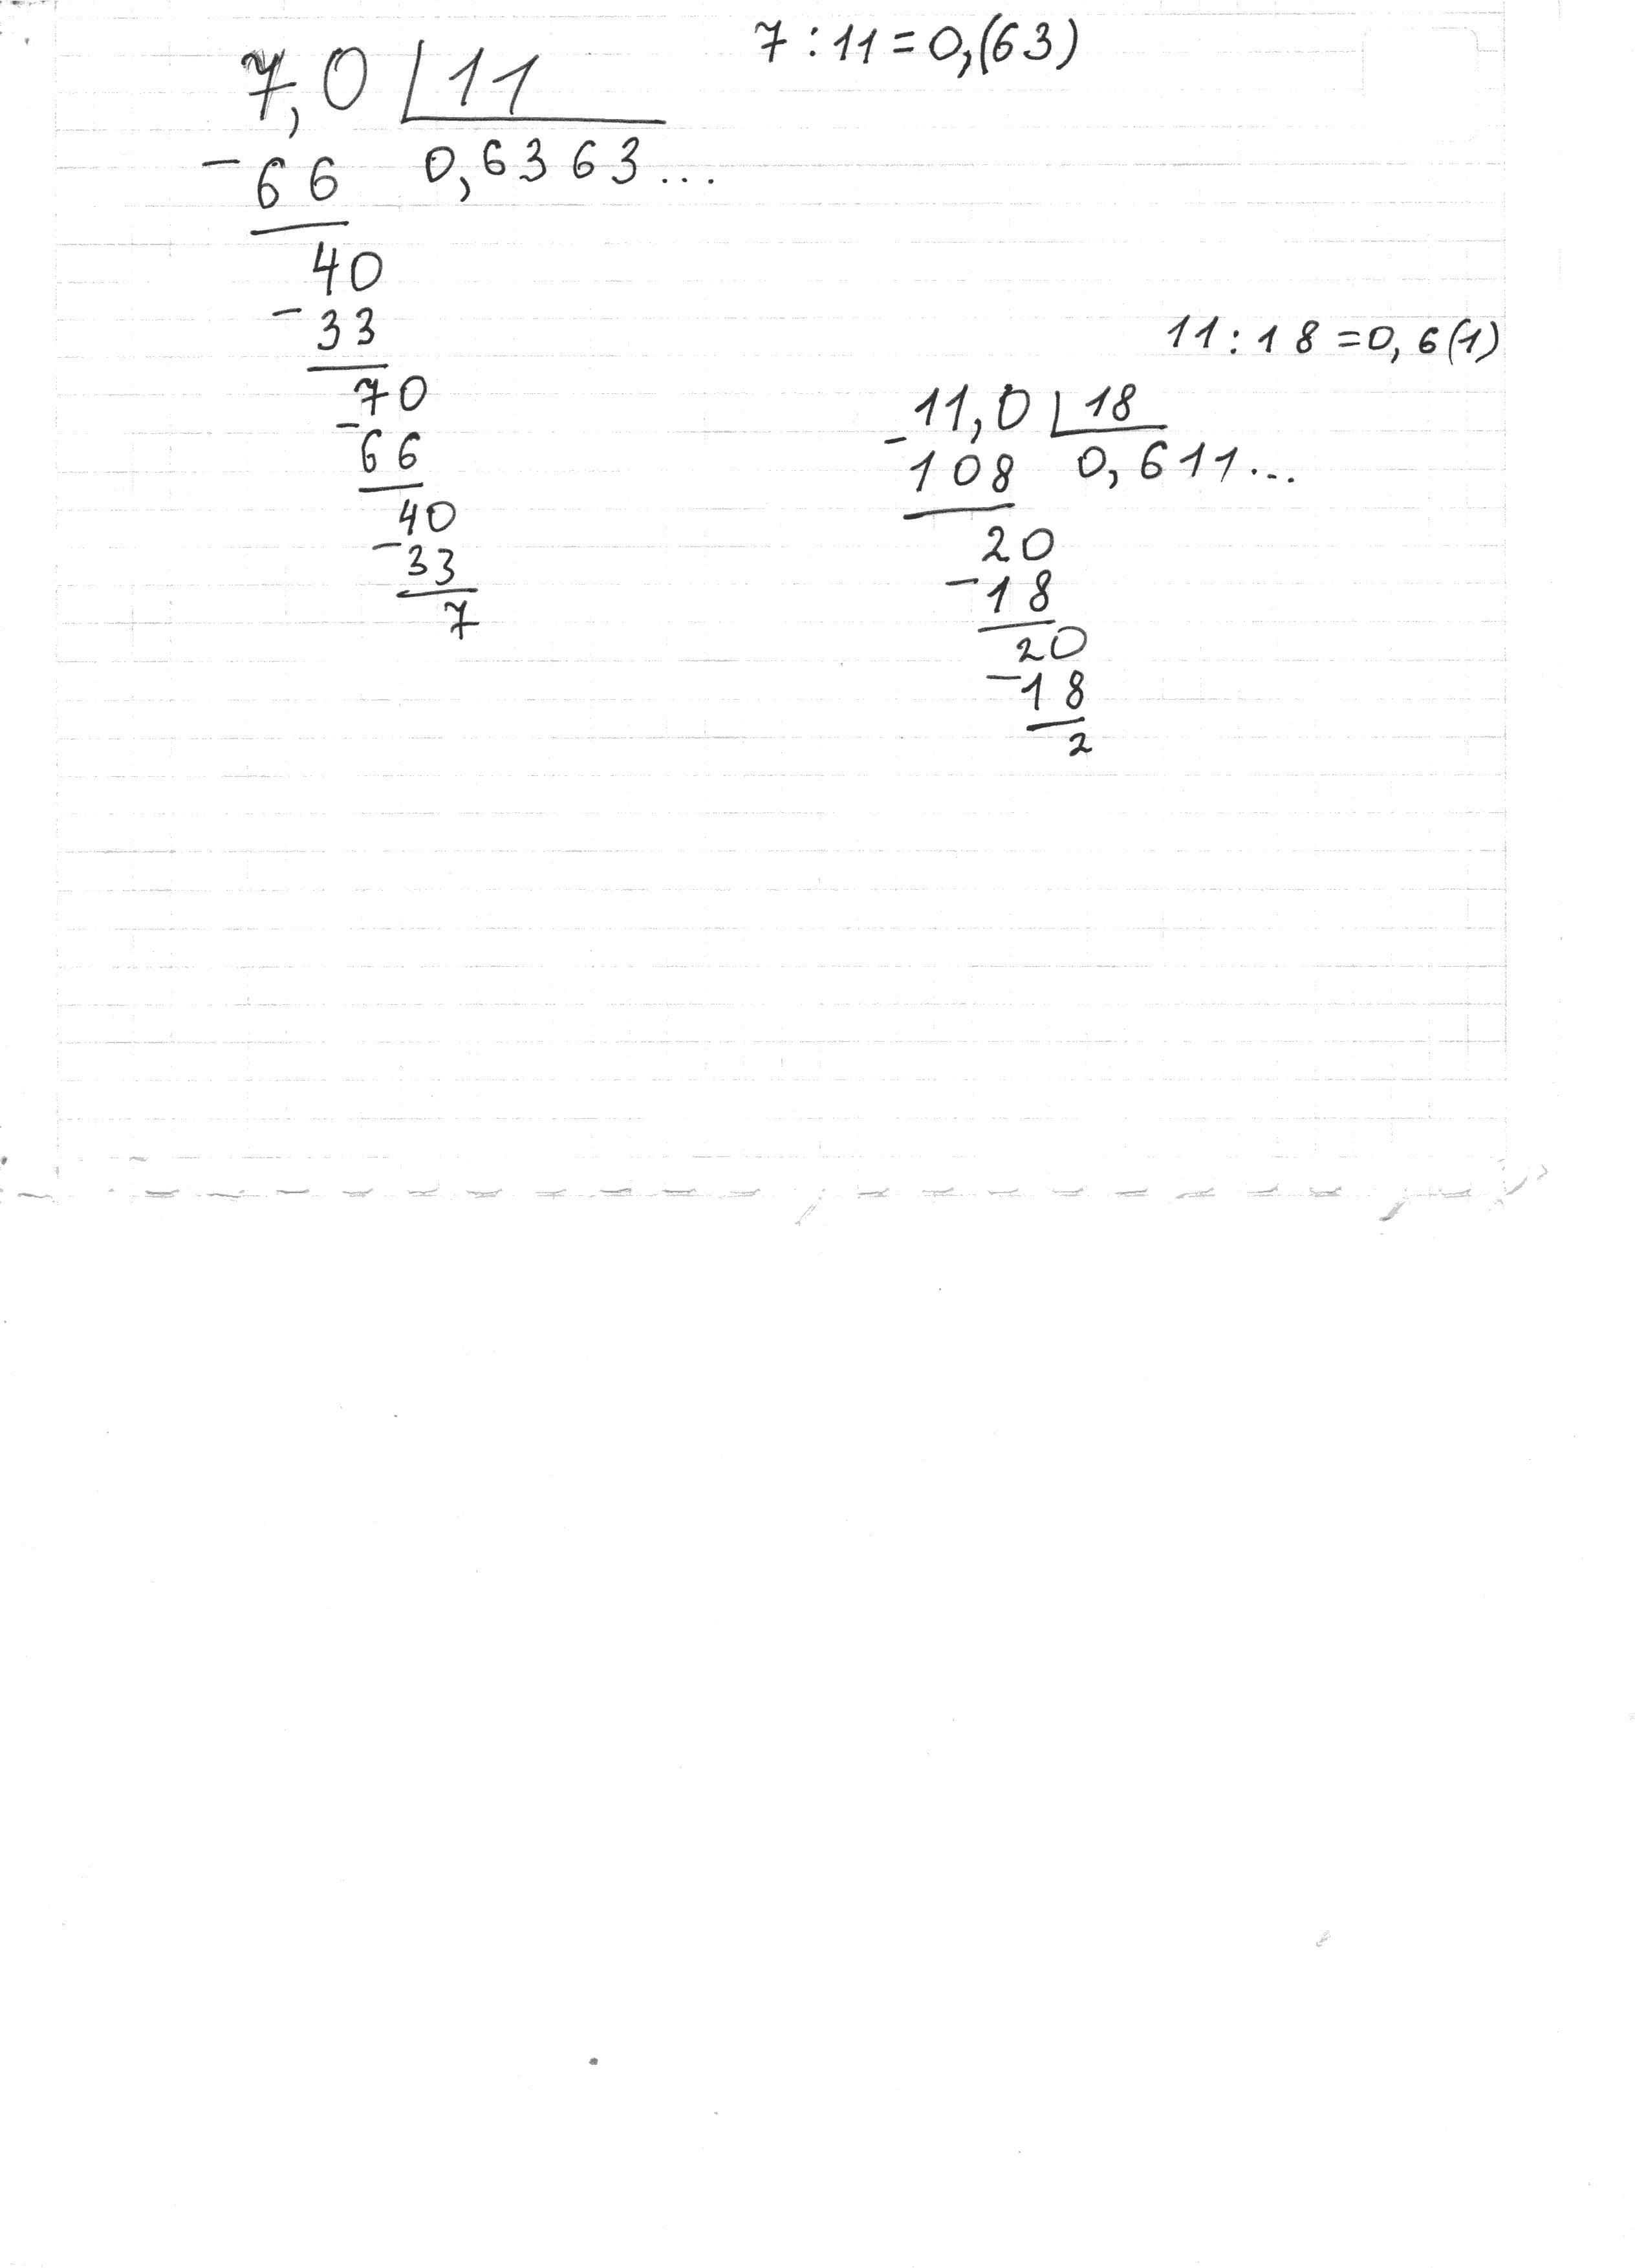 7 : 11 = 0,(63)
7,0 | 11
- 66 0,6363...
40
- 33
70
- 66
40
- 33
7
11 : 18 = 0,6(1)
11,0 | 18
- 108 0,611...
20
- 18
20
- 18
2